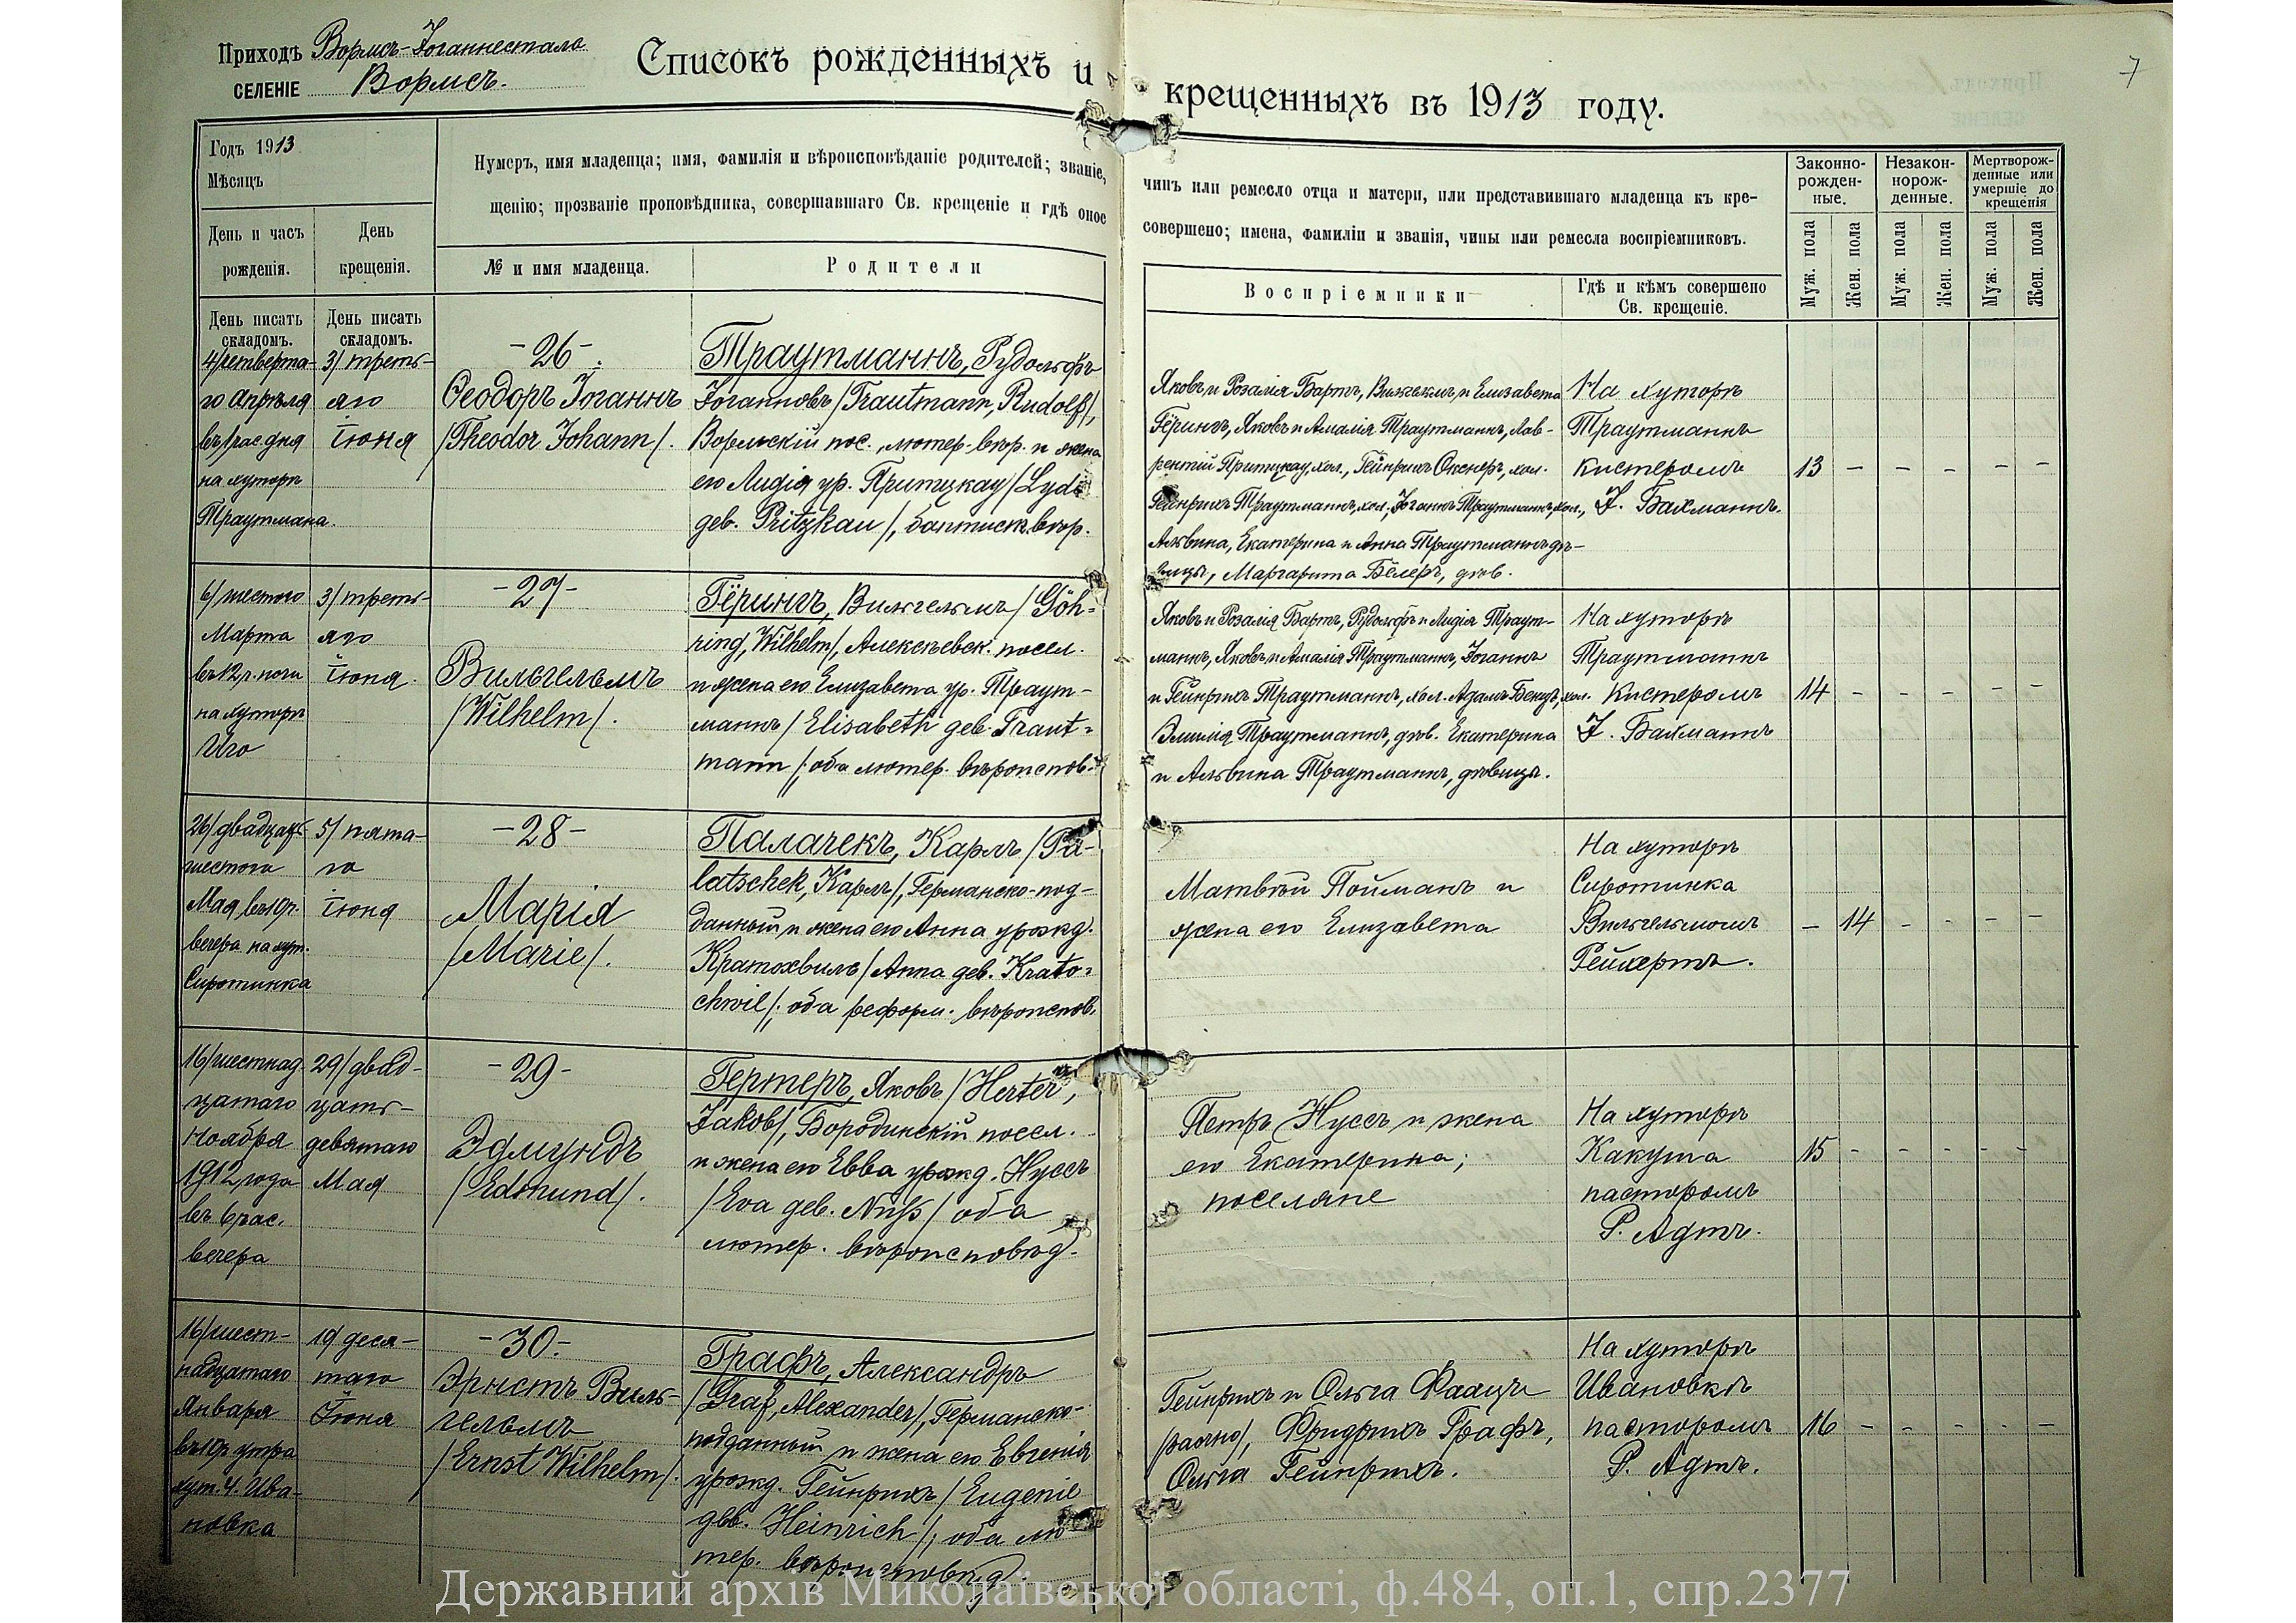 Приходъ Вормсъ-Іоганнесталь
селеніе Вормсъ.
Списокъ рожденныхъ и крещенныхъ въ 1913 году.
7
Годъ 1913
Мѣсяцъ
День и часъ рожденія.
День крещенія.
Нумеръ, имя младенца; имя, фамилія и вѣроисповѣданіе родителей; званіе, чинъ или ремесло отца и матери, или представившаго младенца къ кре-
щенію; прозваніе проповѣдника, совершавшаго Св. крещеніе и гдѣ оное совершено; имена, фамиліи и званія, чины или ремесла воспріемниковъ.
№ и имя младенца.
Родители
Воспріемники
Гдѣ и кѣмъ совершено
Св. крещеніе.
Законно-
рожден-
ные.
Незакон-
норож-
денные.
Мертворож-
денные или
умершіе до
крещенія
Муж. пола
Жен. пола
Муж. пола
Жен. пола
Муж. пола
Жен. пола
День писать
складомъ.
День писать
складомъ.
4/четверта-
го Апрѣля
въ 1 час. дня
на хуторѣ
Траутмана.
3/треть-
яго
Іюня
-26-
Ѳеодоръ Іоганнъ
/Theodor Johann/.
Траутманнъ, Рудольфъ
Іоганновъ /Trautmann, Rudolf/,
Вормскій пос., лютер. вѣр. и жена
его Лидія ур. Притцкау /Lydia
geb. Pritzkau/, баптистк. вѣр.
Яковъ и Розалія Бартъ, Вильгельмъ и Елизавета
Гёрингъ, Яковъ и Амалія Траутманнъ, Лав-
рентій Притцкау, хол., Гейнрихъ Окснеръ, хол.
Гейнрихъ Траутманнъ, хол., Іоганнъ Траутманнъ, хол.,
Альвина, Екатерина и Анна Траутманнъ дѣ-
вицы, Маргарита Бёлеръ, дѣв.
На хуторѣ
Траутманнъ
Кистеромъ
І. Бахманнъ.
13 - - - - -
6/шестого
Марта
въ 12 ч. ночи
на хуторѣ
3/треть-
яго
Іюня.
-27-
Вильгельмъ
/Wilhelm/.
Гёрингъ, Вильгельмъ /Göh-
ring, Wilhelm/, Алексѣевск. посел.
и жена его Елизавета ур. Траут-
маннъ /Elisabeth geb. Traut-
mann/; оба лютер. вѣроисповѣд.
Яковъ и Розалія Бартъ, Рудольфъ и Лидія Траут-
маннъ, Яковъ и Амалія Траутманнъ, Іоганнъ
и Гейнрихъ Траутманнъ, хол. Адамъ Бенцъ, хол.
Эмилія Траутманнъ, дѣв. Екатерина
и Альвина Траутманнъ, дѣвицы.
На хуторѣ
Траутманнъ
Кистеромъ
І. Бахманнъ
14 - - - - -
26/двадцать
шестого
Мая, въ 10 ч.
вечера на хут.
Сиротинка
5/пята-
го
Іюня
-28-
Марія
/Marie/.
Палачекъ, Карлъ /Pa-
latschek, Карлъ/, Германско-под-
данный и жена его Анна урожд.
Кратохвиль /Anna geb. Krato-
chwil/; оба реформ. вѣроисповѣд.
Матвѣй Пойманъ и
жена его Елизавета
На хуторѣ
Сиротинка
Вильгельмомъ
Рейхертъ.
- 14 - - - -
16/шестнад-
цатаго
Ноября
1912 года
въ 6 час.
вечера
29/двад-
цать-
девятаго
Мая
-29-
Эдмундъ
/Edmund/.
Гертеръ, Яковъ /Herter,
Jakob/, Бородинскій посел.
и жена его Евва урожд. Нуссъ
/Eva geb. Nuß/ оба
лютер. вѣроисповѣд.
Петръ Нуссъ и жена
его Екатерина;
поселяне
На хуторѣ
Какута
пасторомъ
Р. Адтъ.
15 - - - - -
16/шест-
надцатаго
Января
въ 10 ч. утра
хут. Ч. Ива-
новка
10/деся-
таго
Іюня
-30-
Эрнстъ Виль-
гельмъ
/Ernst Wilhelm/.
Графъ, Александръ
/Graf, Alexander/, Германско-
подданный и жена его Евгенія
урожд. Гейнрихъ /Eugenie
geb. Heinrich/; оба лю-
тер. вѣроисповѣд.
Гейнрихъ и Ольга Фаацъ
/заочно/, Фридрихъ Графъ,
Ольга Гейнрихъ.
На хуторѣ
Ивановкѣ
пасторомъ
Р. Адтъ.
16 - - - - -
Державний архів Миколаївської області, ф.484, оп.1, спр.2377